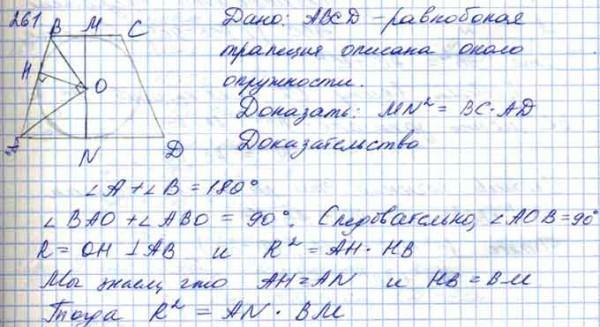 261
B M C
H
O
A N D
Дано: ABCD - равнобокая
трапеция описана около
окружности.
Доказать: MN² = BC·AD
Доказательство
∠A + ∠B = 180°
∠BAO + ∠ABO = 90°. Следовательно, ∠AOB = 90°
R = OH ⊥ AB и R² = AH · HB
Мы знаем, что AH = AN и HB = BM
Тогда R² = AN · BM